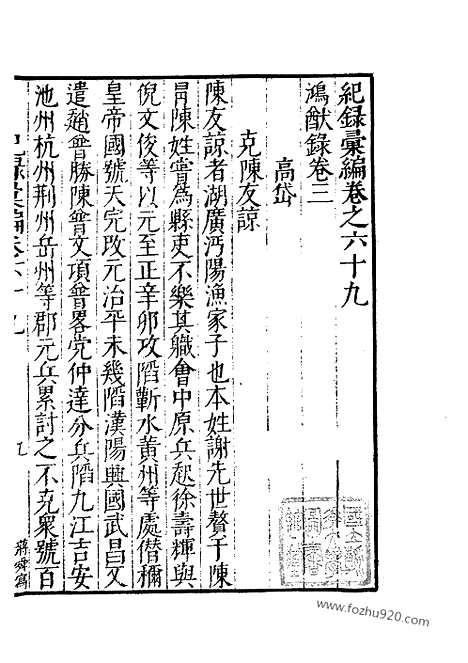 紀録彙編卷之六十九
鴻猷錄卷三
高岱
克陳友諒
陳友諒者湖廣沔陽漁家子也本姓謝先世贅于陳
冐陳姓嘗為縣吏不樂其職會中原兵起徐壽輝與
倪文俊等以元至正辛卯攻䧟蘄水黃州等處僣稱
皇帝國號天完改元治平未幾䧟漢陽興國武昌又
遣趙普勝陳普文項普畧党仲達分兵䧟九江吉安
池州杭州荆州岳州等郡元兵累討之不克衆號百
蔣舜寫
www.fozhu920.com